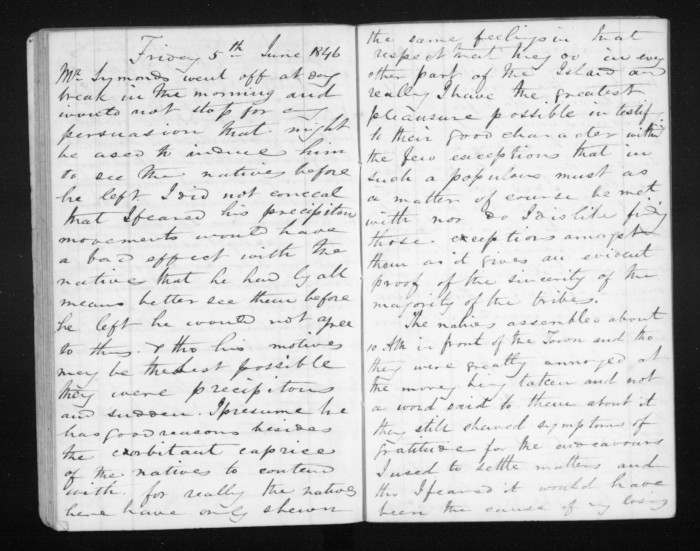 Friday 5th June 1846
Mr Symonds went off at day
break in the morning and
would not stop for any
persuasion that might
be used to induce him
to see the natives before
he left I did not conceal
that I feared his precipitou
movements would have
a bad effect with the
natives that he had by all
means better see them before
he left he would not agree
to this. & tho his motives
may be the best possible
they were precipitous
and sudden. I presume he
has good reasons besides
the exorbitant caprice
of the natives to contend
with. for really the natives
here have only shewn
the same feelings in that
respect that they do in every
other part of the Island and
really I have the greatest
pleausure possible in testify
to their good character with
the few exceptions that in
such a populous must as
a matter of course be met
with nor do I dislike findg
those exceptions amongst
them as it gives an evident
proof of the sincerity of the
majority of the tribes.
The natives assembled about
10 AM in front of the Town and tho
they were greatly annoyed at
the money being taken and not
a word said to them about it
they still shewed symptoms of
Gratitude for the endeavours
I used to settle matters and
tho I feared it would have
been the cause of my losing